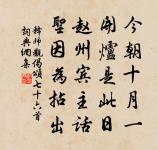 今朝十月一
開爐是此日
趙州賓主話
聖因為拈出
釋師觀偈頌七十六首
詞典網集